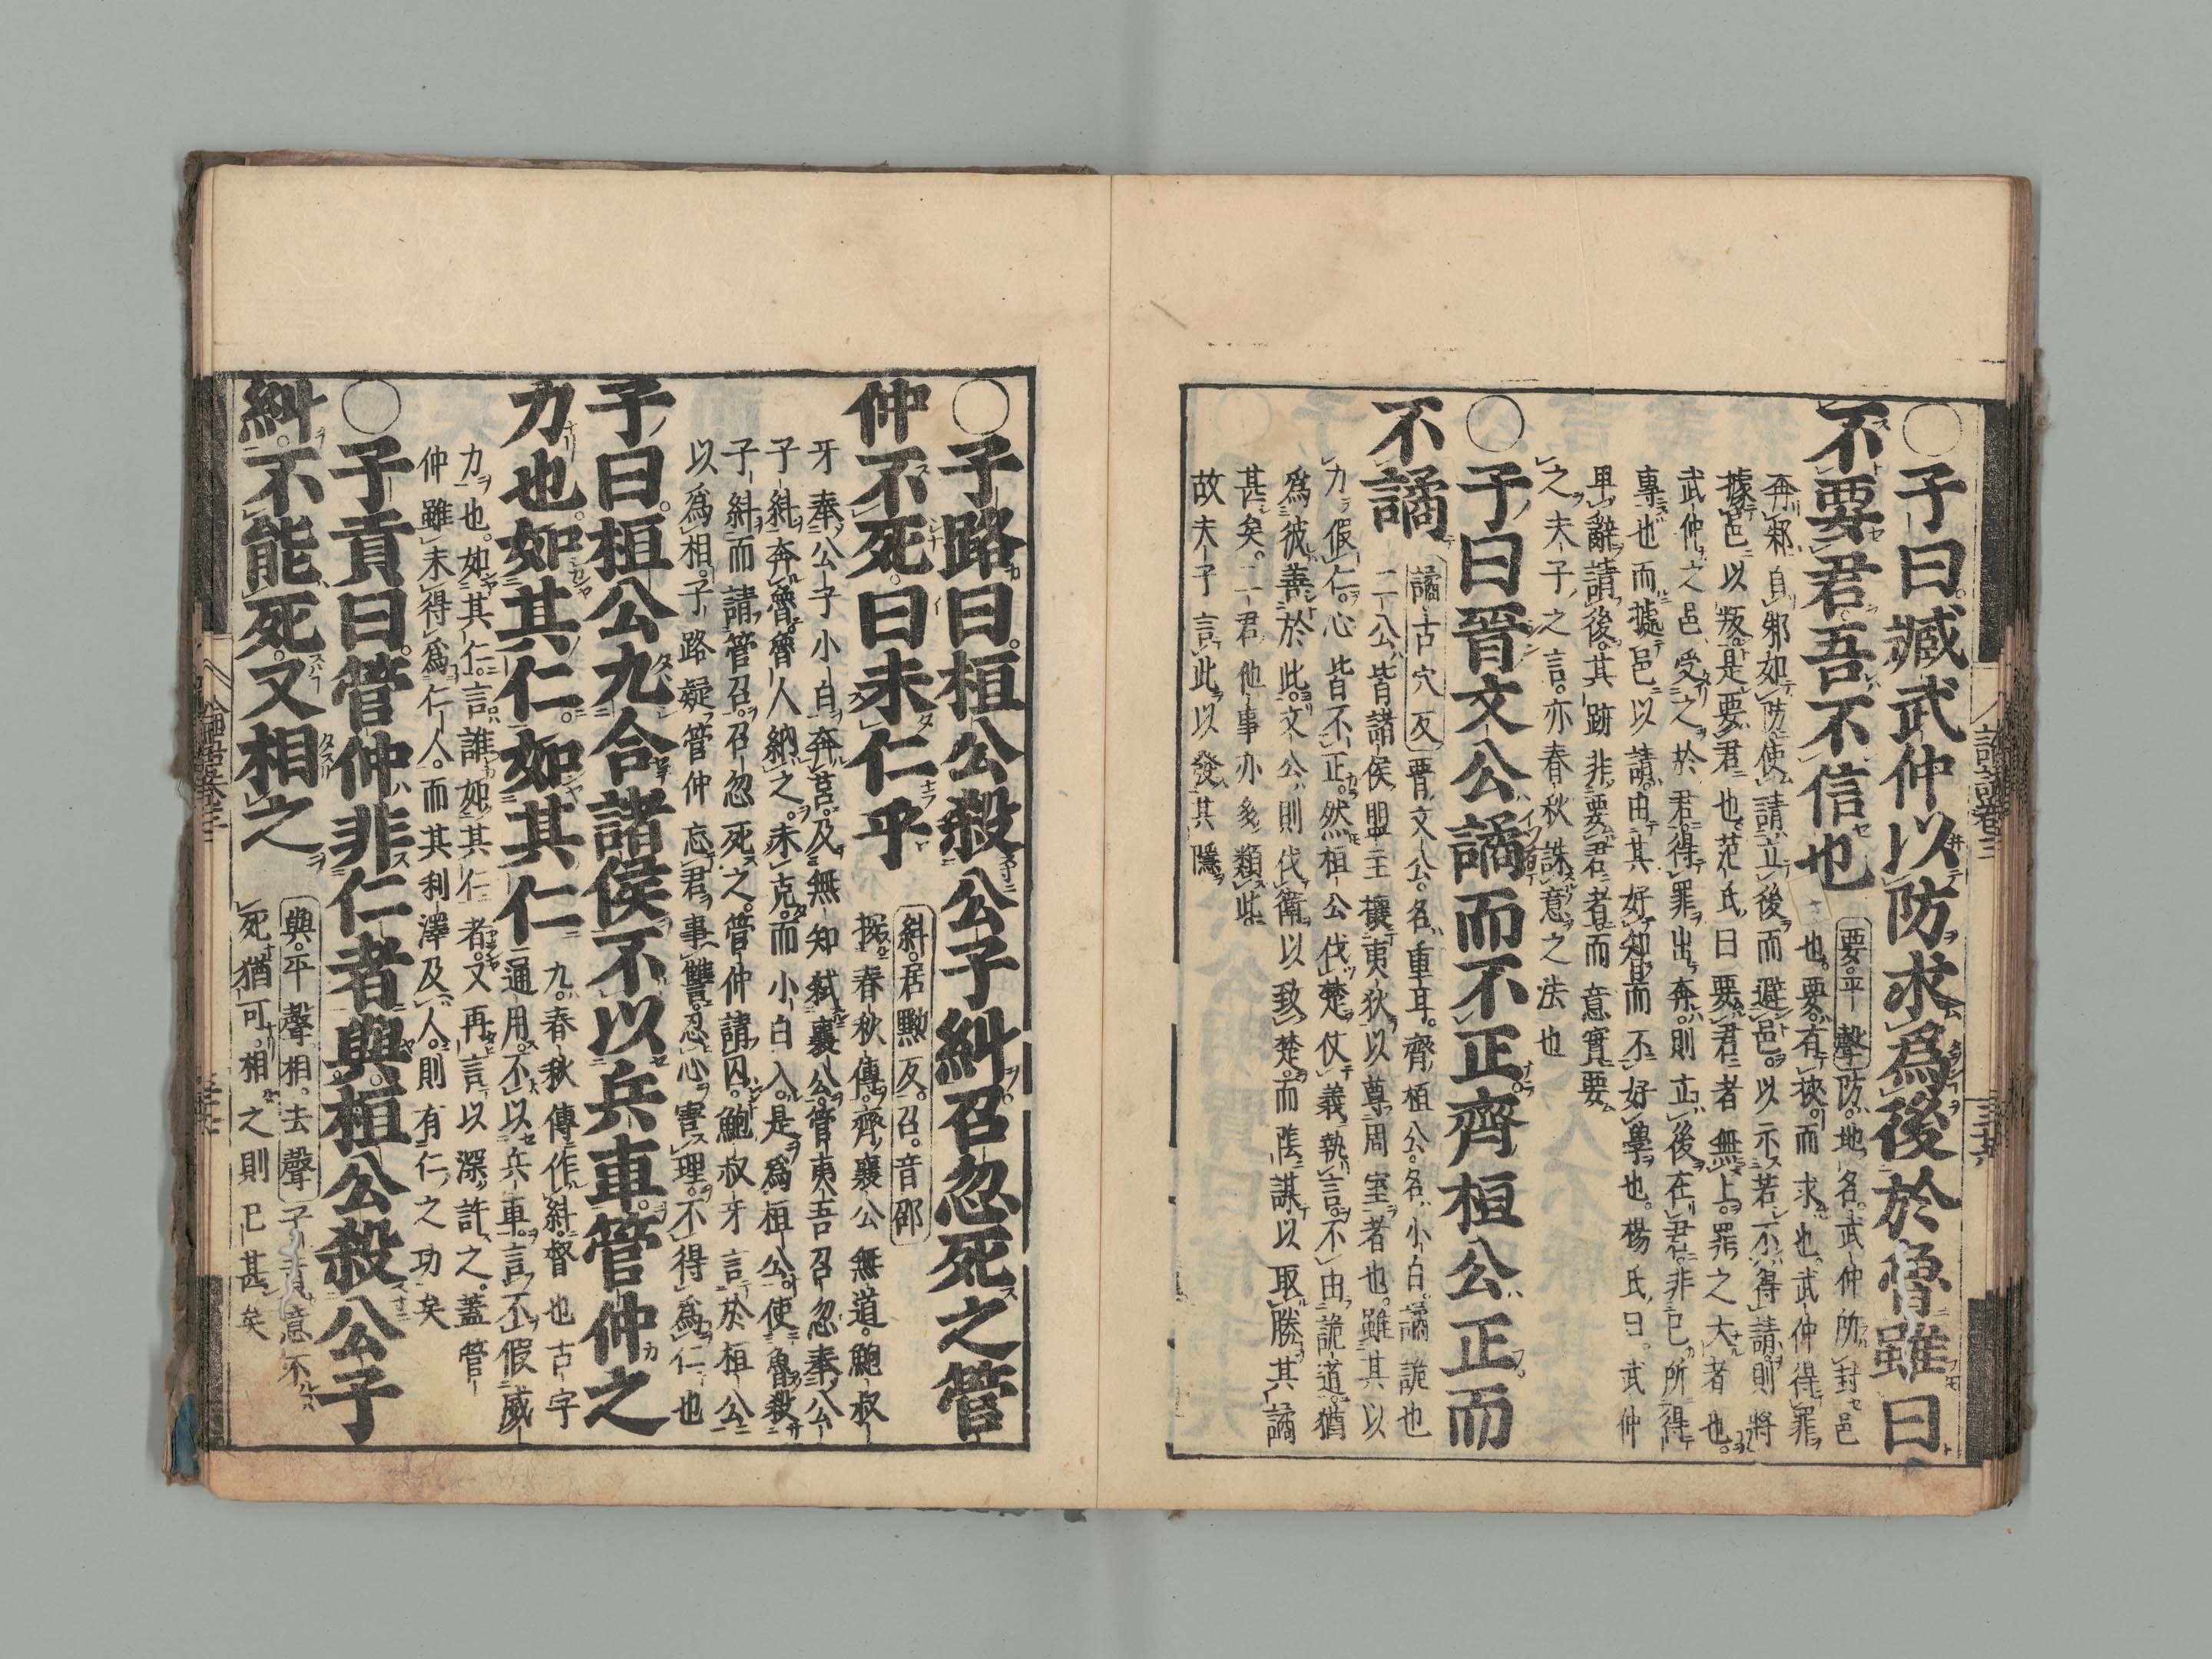 ○子曰臧武仲以防求爲後於魯雖曰
不要君吾不信也
要平聲防地名武仲所封邑
也要有挾而求也武仲得罪
奔邾自邾如防使請立後而避邑以示若不得請則將
據邑以叛是要君也范氏曰要君者無上罪之大者也
武仲之邑受之於君得罪出奔則立後在君非己所得
專也而據邑以請由其好知而不好學也楊氏曰武仲
卑辭請後其跡非要君者而意實要
之夫子之言亦春秋誅意之法也
○子曰晉文公譎而不正齊桓公正而
不譎
譎古穴反晉文公名重耳齊桓公名小白譎詭也
二公皆諸侯盟主攘夷狄以尊周室者也雖其以
力假仁心皆不正然桓公伐楚仗義執言不由詭道猶
爲彼善於此文公則伐衞以致楚而陰謀以取勝其譎
甚矣二君他事亦多類此
故夫子言此以發其隱
○子路曰桓公殺公子糾召忽死之管
仲不死曰未仁乎
糾居黝反召音邵
按春秋傳齊襄公無道鮑叔
牙奉公子小白奔莒及無知弑襄公管夷吾召忽奉公
子糾奔魯魯人納之未克而小白入是爲桓公使魯殺
子糾而請管召召忽死之管仲請囚鮑叔牙言於桓公
以爲相子路疑管仲忘君事讐忍心害理不得爲仁也
子曰桓公九合諸侯不以兵車管仲之
力也如其仁如其仁
九春秋傳作糾督也古字
通用不以兵車言不假威
力也如其仁言誰如其仁者又再言以深許之蓋管
仲雖未得爲仁人而其利澤及人則有仁之功矣
○子貢曰管仲非仁者與桓公殺公子
糾不能死又相之
與平聲相去聲子貢意不
死猶可相之則已甚矣
論語卷三